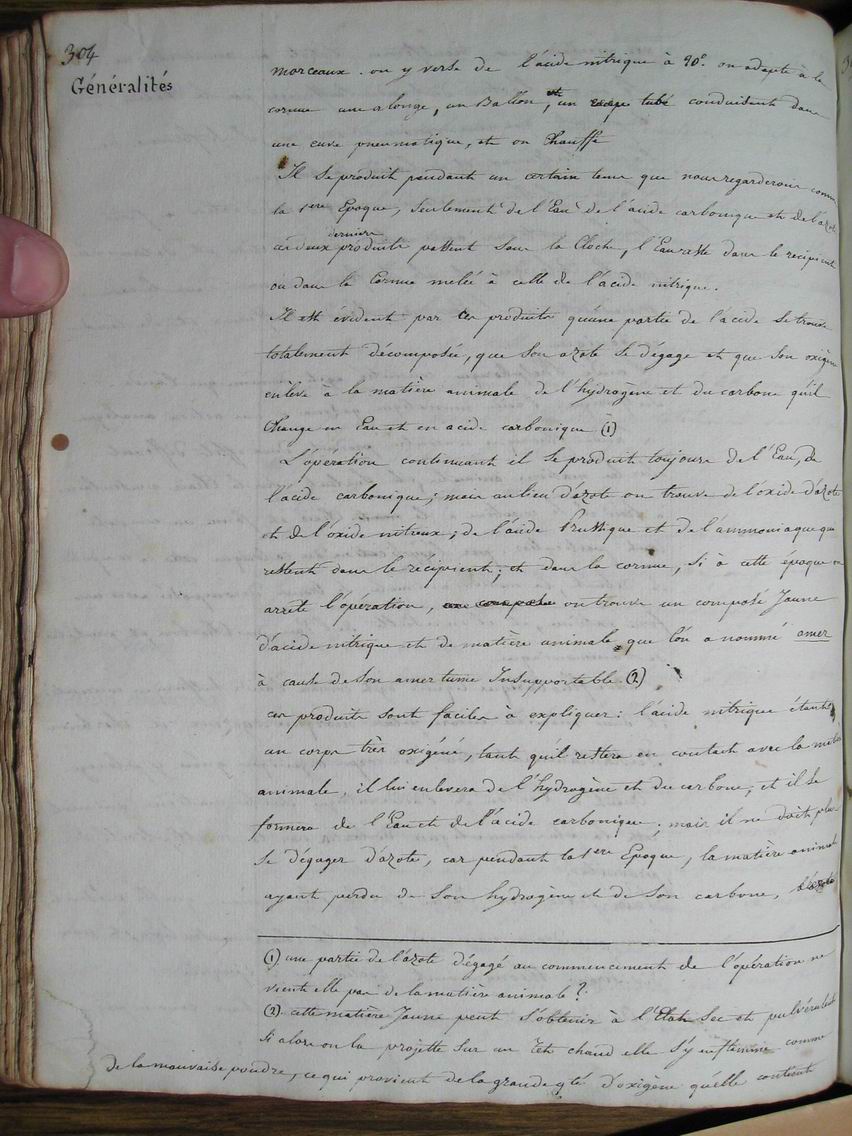 304
Généralités
morceaux. on y verse de l'acide nitrique à 90°. on adapte à la
cornue une alonge, un Ballon, un tube conduisant dans
une cuve pneumatique, et on chauffe
Il se produit pendant un certain tems que nous regarderons comme
la 1ere Epoque, seulement de l'Eau de l'acide carbonique et de l'azote
derniers
ces deux produits passent sous la Cloche, l'Eau reste dans le recipient
ou dans la Cornue melée à celle de l'acide nitrique.
Il est évident par ces produits qu'une partie de l'acide se trouve
totalement décomposée, que son azote se dégage et que son oxigène
enlève à la matière animale de l'hydrogène et du carbone qu'il
change en Eau et en acide carbonique (1)
L'opération continuant il se produit toujours de l'Eau, de
l'acide carbonique; mais au lieu d'azote on trouve de l'oxide d'azote
et de l'oxide nitreux; de l'acide Prussique et de l'ammoniaque qui
restent dans le récipient; et dans la cornue, si à cette époque on
arrête l'opération, on trouve un composé Jaune
d'acide nitrique et de matière animale que l'on a nommé amer
à cause de son amertume Insupportable (2)
ces produits sont faciles à expliquer: l'acide nitrique étant
un corps très oxigéné, tant qu'il restera en contact avec la matière
animale, il lui enlevera de l'hydrogène et du carbone, et il se
formera de l'Eau et de l'acide carbonique; mais il ne doit plus
se dégager d'azote, car pendant la 1ere Epoque, la matière animale
ayant perdu de son hydrogène et de son carbone,
(1) une partie de l'azote dégagé au commencement de l'opération ne
vient elle pas de la matière animale?
(2) cette matière Jaune peut s'obtenir à l'Etat sec et pulvérulent
si alors on la projette sur un Têt chaud elle s'y enflamme comme
de la mauvaise poudre, ce qui provient de la grande qté d'oxigène qu'elle contient